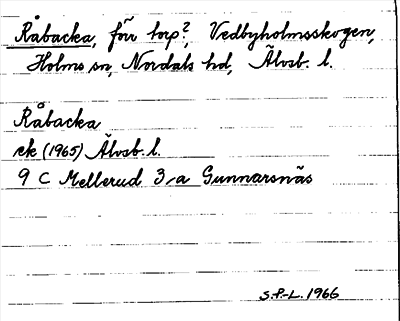 Råbacka, förr torp?, Vedbyholmsskogen,
Holms sn, Nordals hd, Älvsb. l.
Råbacka
ek (1965) Älvsb. l.
9 C Mellerud 3/a Gunnarsnäs
S.P.-L. 1966